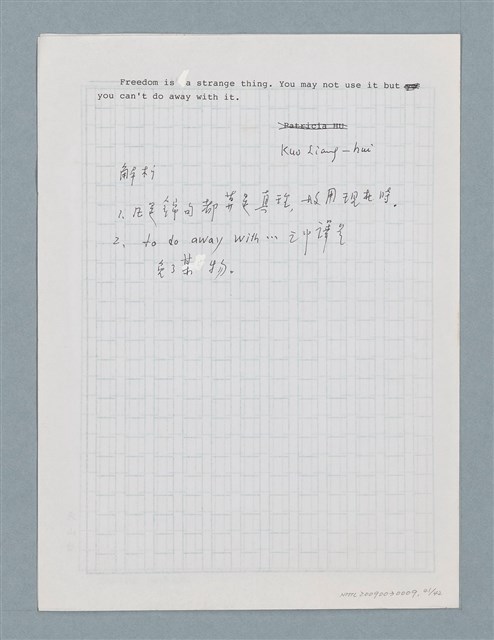 Freedom is a strange thing. You may not use it but
you can't do away with it.
Patricia Hu
Kuo Liang-hui
解析
1. 凡是錦句都算是真理，故用現在時。
2. to do away with… 之中譯是
免了某物。
NMTL20090030009, 41/62